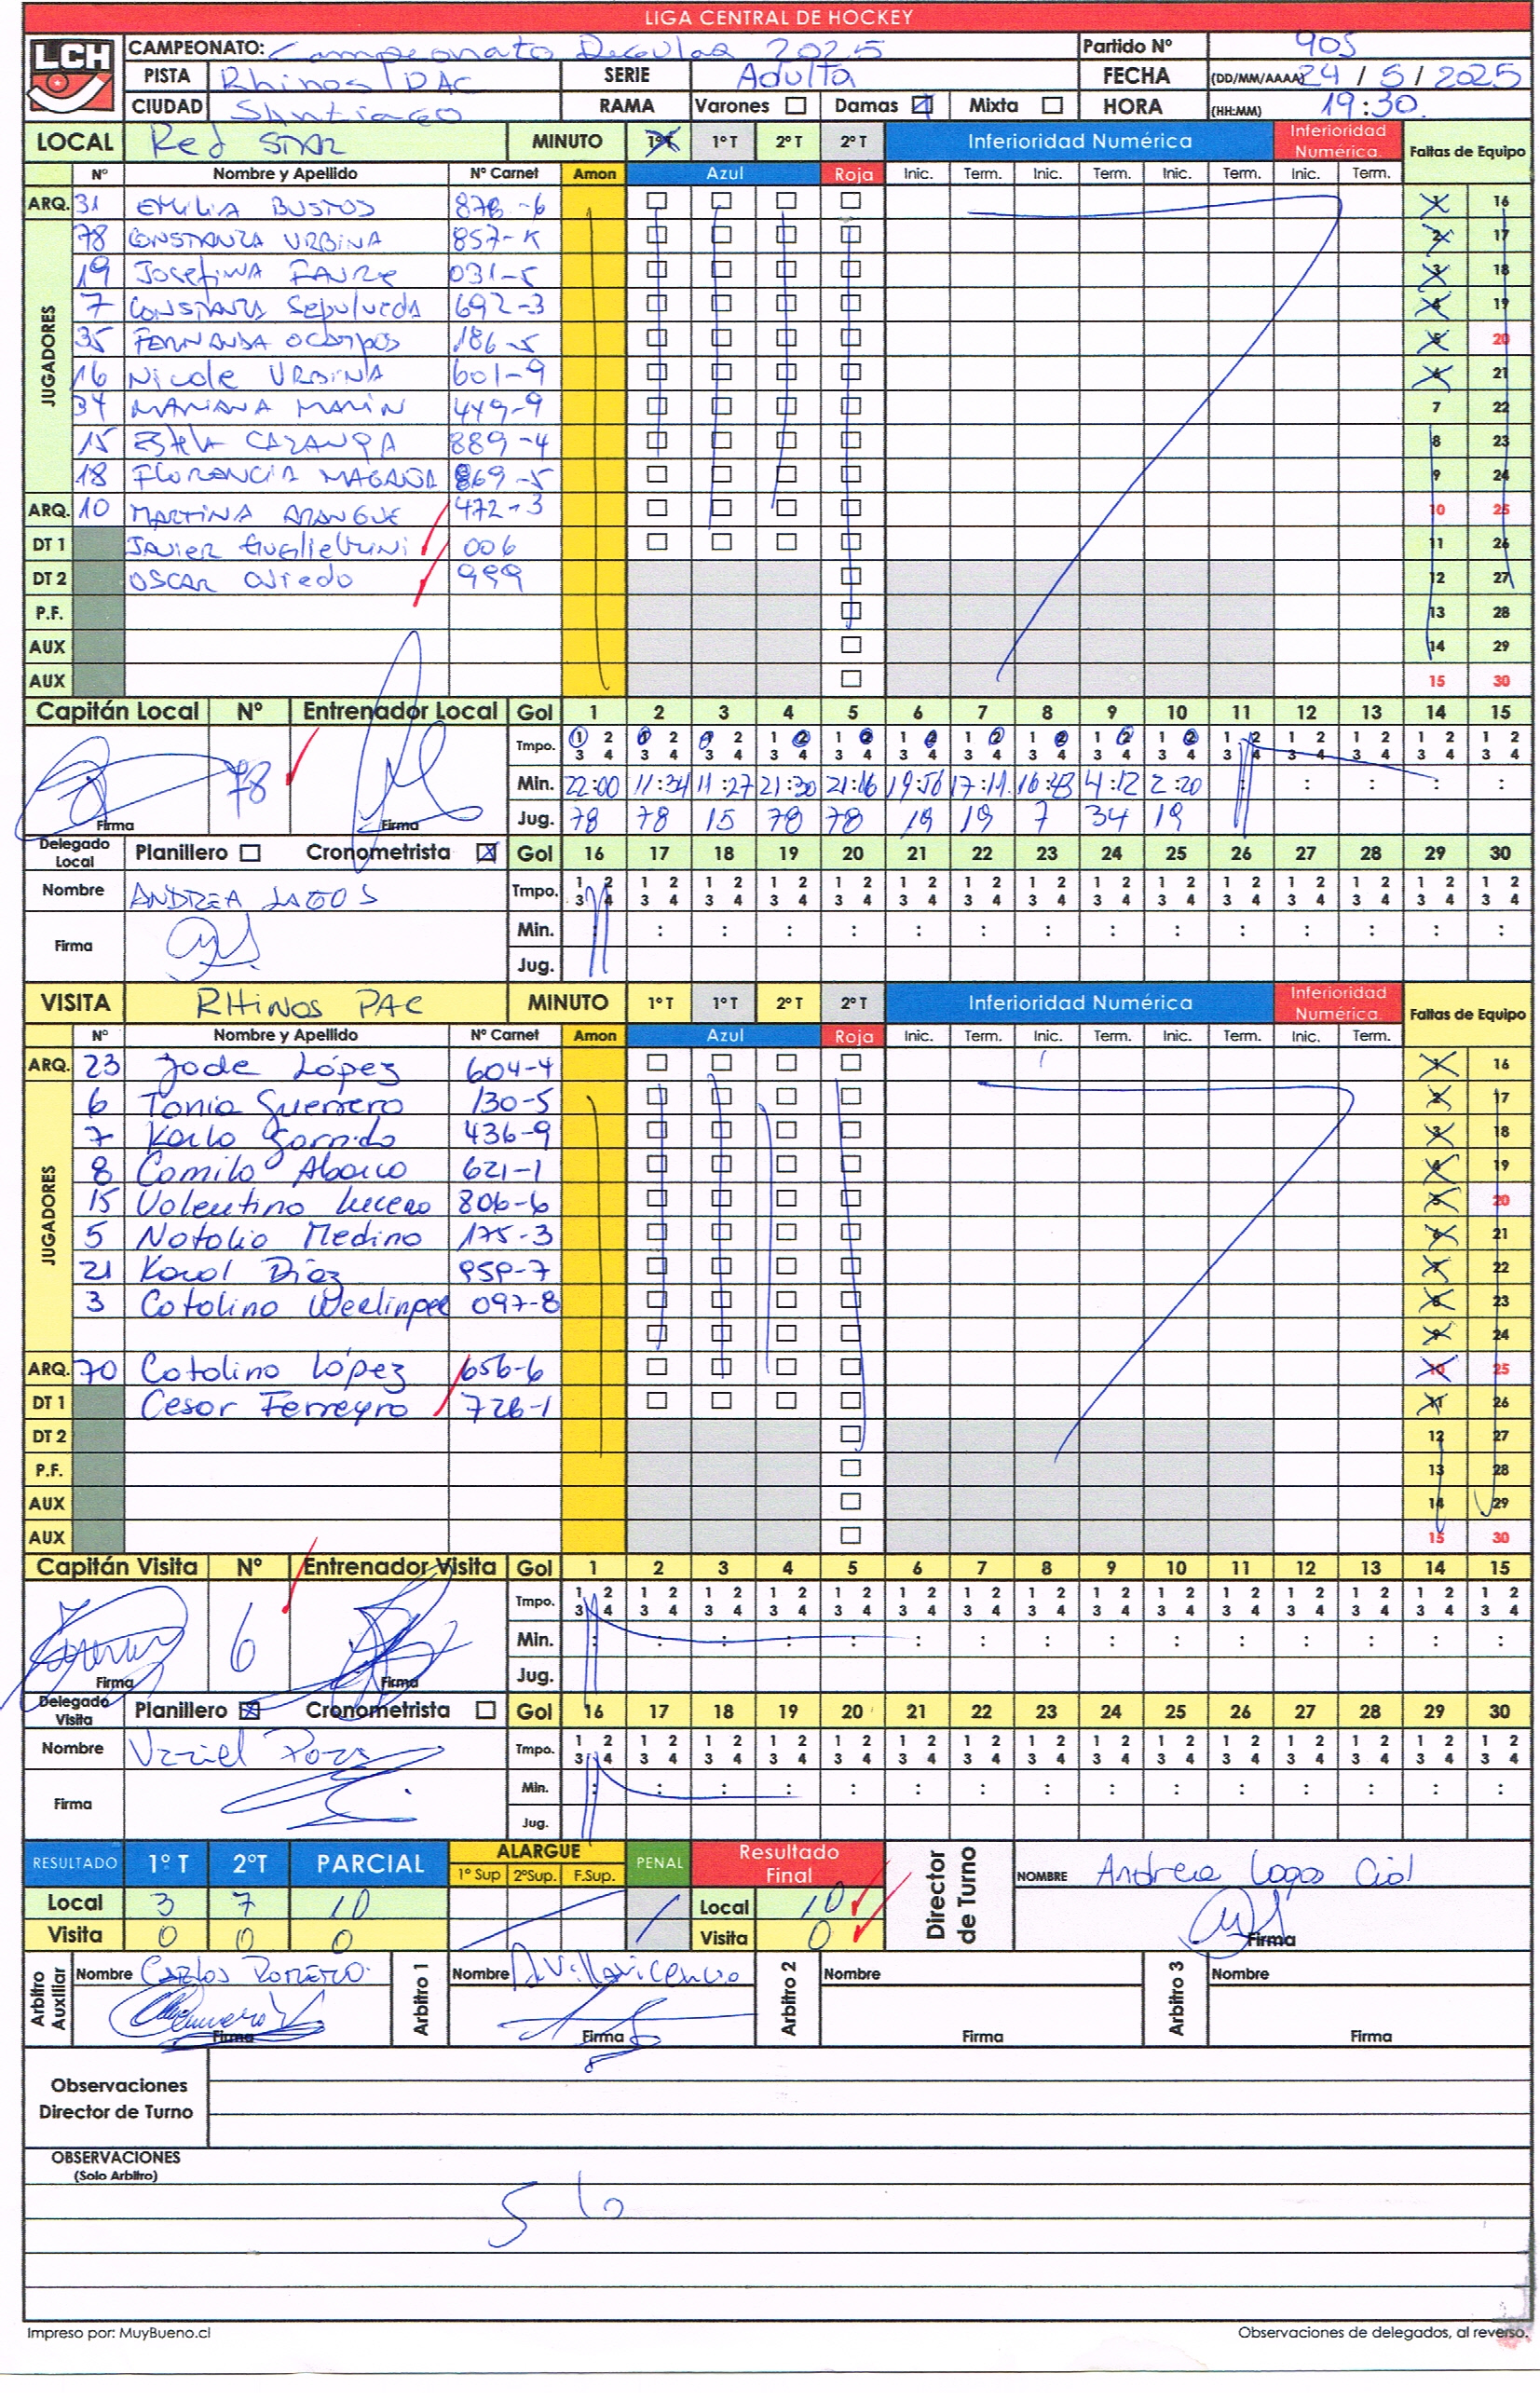 LIGA CENTRAL DE HOCKEY
LCH
CAMPEONATO: Campeonato 2025 Partido Nº 905
PISTA Rhinos PAC SERIE Adulta FECHA (DD/MM/AAAA) 24 / 5 / 2025
CIUDAD Santiago RAMA Varones Damas Mixta HORA (HH:MM) 19:30
LOCAL Red STAR MINUTO 1º T 1º T 2º T 2º T Inferioridad Numérica Inferioridad Numérica. Faltas de Equipo
Nº Nombre y Apellido Nº Carnet Amon Azul Roja Inic. Term. Inic. Term. Inic. Term. Inic. Term.
ARQ. 31 EMILIA BUSTOS 878-6 1 16
JUGADORES
78 CONSTANZA URBINA 857-K 2 17
19 JOSEFINA FAURE 031-5 3 18
7 CONSTANZA Sepulveda 692-3 4 19
35 FERNANDA OCAMPOS 186-5 5 20
16 Nicole URBINA 601-9 6 21
34 MARIANA MARIN 449-9 7 22
15 889-4 8 23
18 FLORENCIA MAGAÑA 869-5 9 24
ARQ. 10 MARTINA ARANGUE 472-3 10 25
DT 1 JAVIER 006 11 26
DT 2 OSCAR Oviedo 999 12 27
P.F. 13 28
AUX 14 29
AUX 15 30
Capitán Local Nº Entrenador Local Gol 1 2 3 4 5 6 7 8 9 10 11 12 13 14 15
Tmpo. 1 2 3 4 1 2 3 4 1 2 3 4 1 2 3 4 1 2 3 4 1 2 3 4 1 2 3 4 1 2 3 4 1 2 3 4 1 2 3 4 1 2 3 4 1 2 3 4 1 2 3 4 1 2 3 4 1 2 3 4
78 Min. 22:00 11:34 11:27 21:30 21:16 19:56 17:11 16:43 4:12 2:20 : : : : :
Firma Firma Jug. 78 78 15 78 78 19 19 7 34 19
Delegado Local Planillero Cronometrista Gol 16 17 18 19 20 21 22 23 24 25 26 27 28 29 30
Nombre ANDREA LAGOS Tmpo. 1 2 3 4 1 2 3 4 1 2 3 4 1 2 3 4 1 2 3 4 1 2 3 4 1 2 3 4 1 2 3 4 1 2 3 4 1 2 3 4 1 2 3 4 1 2 3 4 1 2 3 4 1 2 3 4 1 2 3 4
Firma Min. : : : : : : : : : : : : : : :
Jug.
VISITA RHINOS PAC MINUTO 1º T 1º T 2º T 2º T Inferioridad Numérica Inferioridad Numérica. Faltas de Equipo
Nº Nombre y Apellido Nº Carnet Amon Azul Roja Inic. Term. Inic. Term. Inic. Term. Inic. Term.
ARQ. 23 López 604-4 1 16
JUGADORES
6 Tania Guerrero 130-5 2 17
7 Karla Garrido 436-9 3 18
8 Camila Abarca 621-1 4 19
15 Valentina Lucero 806-6 5 20
5 Natalia Medina 175-3 6 21
21 Karol Díaz 959-7 7 22
3 Catalina 097-8 8 23
9 24
ARQ. 70 Catalina López 656-6 10 25
DT 1 Cesar Ferreyra 726-1 11 26
DT 2 12 27
P.F. 13 28
AUX 14 29
AUX 15 30
Capitán Visita Nº Entrenador Visita Gol 1 2 3 4 5 6 7 8 9 10 11 12 13 14 15
Tmpo. 1 2 3 4 1 2 3 4 1 2 3 4 1 2 3 4 1 2 3 4 1 2 3 4 1 2 3 4 1 2 3 4 1 2 3 4 1 2 3 4 1 2 3 4 1 2 3 4 1 2 3 4 1 2 3 4 1 2 3 4
6 Min. : : : : : : : : : : : : : : :
Firma Firma Jug.
Delegado Visita Planillero Cronometrista Gol 16 17 18 19 20 21 22 23 24 25 26 27 28 29 30
Nombre Tmpo. 1 2 3 4 1 2 3 4 1 2 3 4 1 2 3 4 1 2 3 4 1 2 3 4 1 2 3 4 1 2 3 4 1 2 3 4 1 2 3 4 1 2 3 4 1 2 3 4 1 2 3 4 1 2 3 4 1 2 3 4
Firma Min. : : : : : : : : : : : : : : :
Jug.
RESULTADO 1º T 2ºT PARCIAL ALARGUE 1º Sup 2ºSup. F.Sup. PENAL Resultado Final Director de Turno NOMBRE Andrea Lagos Cid
Local 3 7 10 Local 10
Visita 0 0 0 Visita 0 Firma
Arbitro Auxiliar Nombre Carlos Romero Arbitro 1 Nombre A Villavicencio Arbitro 2 Nombre Arbitro 3 Nombre
Firma Firma Firma Firma
Observaciones
Director de Turno
OBSERVACIONES
(Solo Arbitro)
Impreso por: MuyBueno.cl Observaciones de delegados, al reverso.